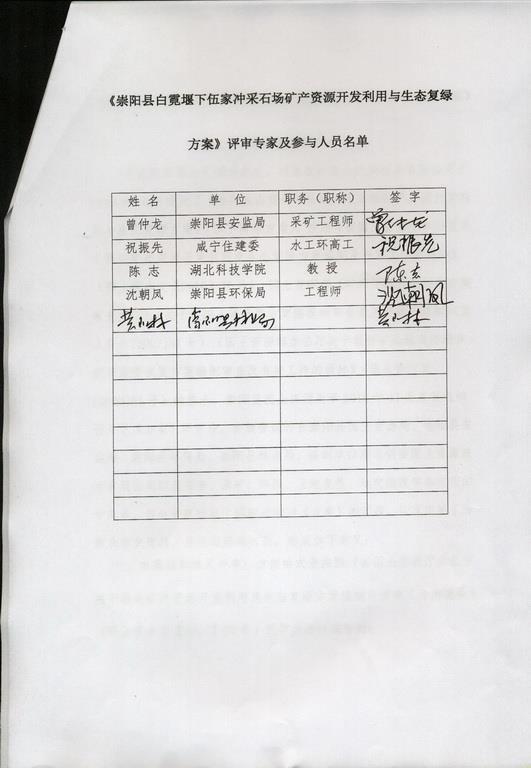 《崇阳县白霓堰下伍家冲采石场矿产资源开发利用与生态复绿
方案》评审专家及参与人员名单
姓名 单位 职务（职称） 签字
曾仲龙 崇阳县安监局 采矿工程师 曾仲龙
祝振先 咸宁住建委 水工环高工 祝振先
陈志 湖北科技学院 教授 陈志
沈朝凤 崇阳县环保局 工程师 沈朝凤